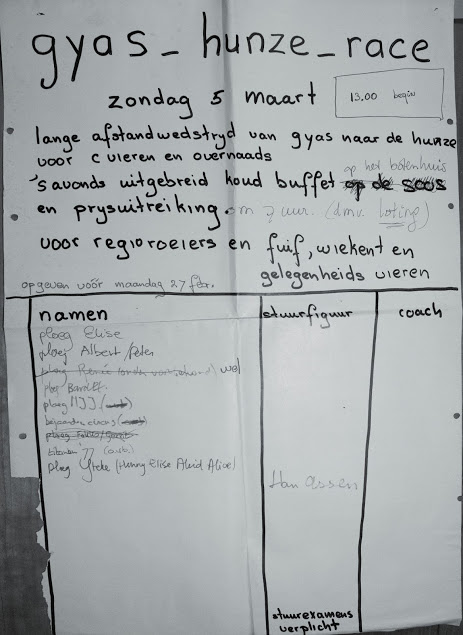 gyas_hunze_race
zondag 5 maart
13.00 begin
lange afstandwedstryd van gyas naar de hunze
voor c vieren en overnaads
op het botenhuis
's avonds uitgebreid koud buffet op de soos
en prysuitreiking om 7 uur. (dmv. loting)
voor regioroeiers en fuif, wiekent en
gelegenheids vieren
opgeven vóór maandag 27 febr.
namen
stuurfiguur
coach
ploeg Elise
ploeg Albert/Peter
ploeg Renée wel
ploeg
ploeg MJJ
ploeg
ploeg (Henny Elise Alice)
Han Assen
stuurexamens
verplicht